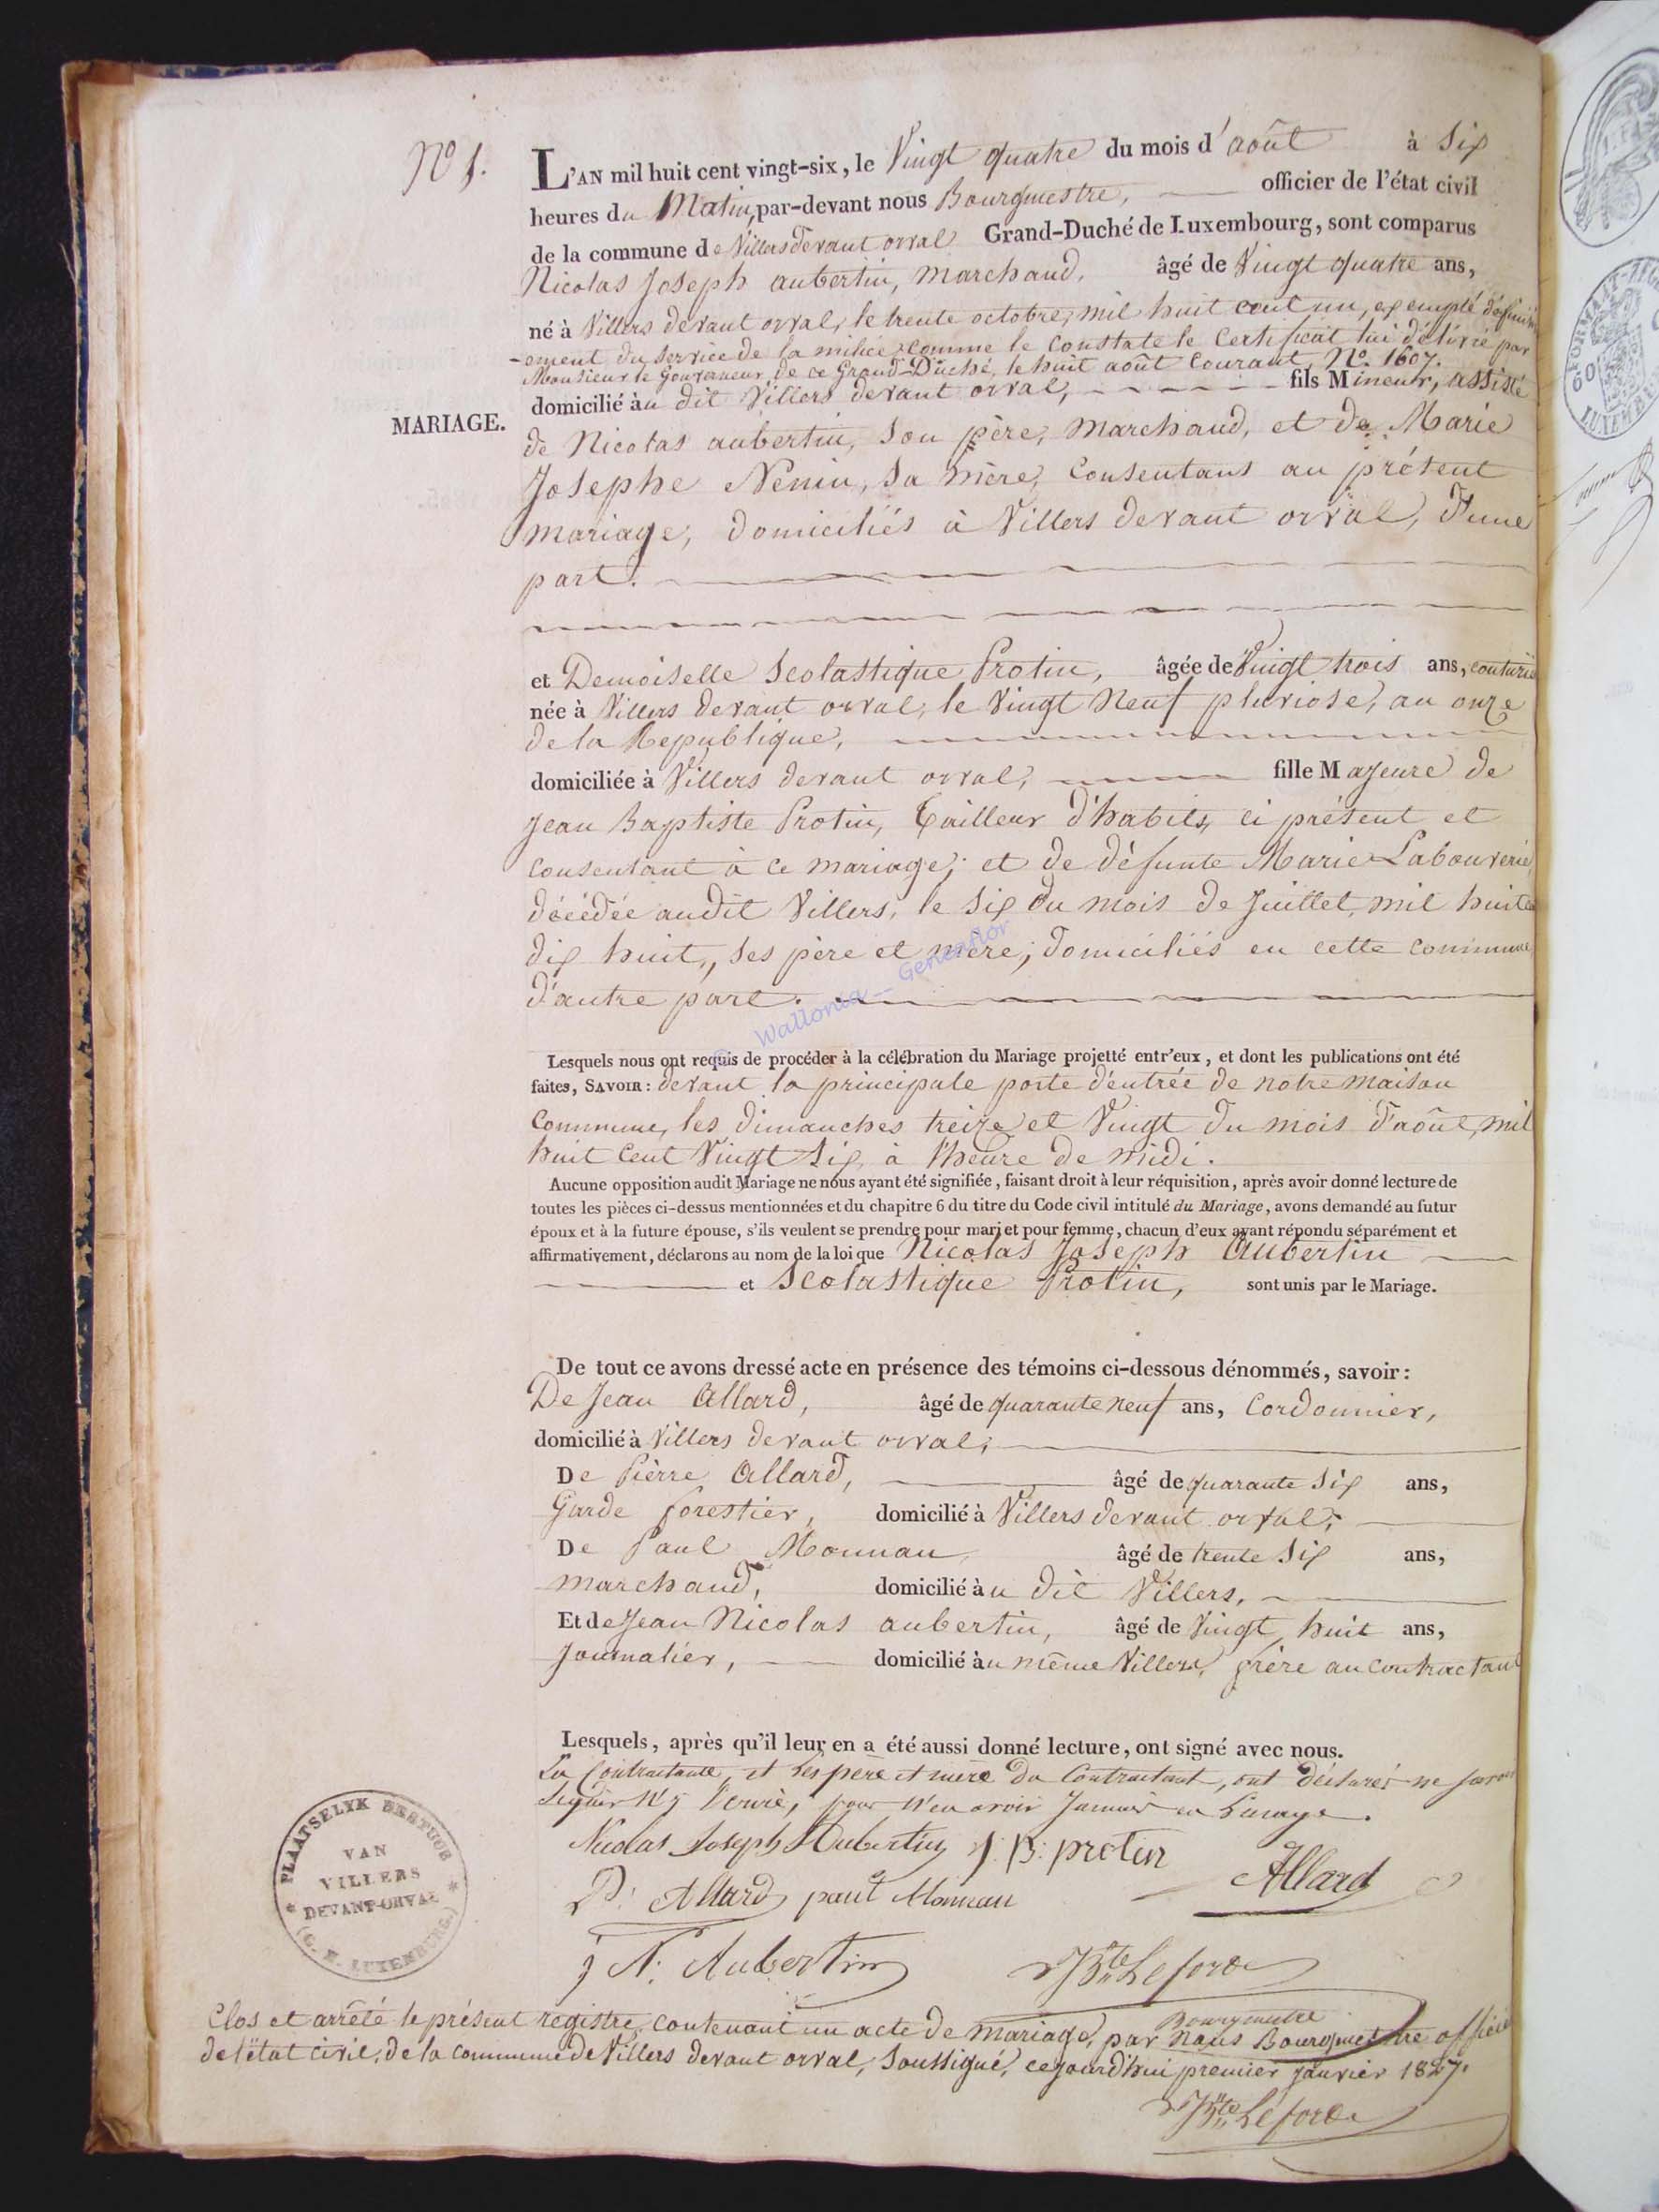 N° 1.
L'AN mil huit cent vingt-six, le Vingt quatre du mois d'août à Six
heures du Matin, par-devant nous Bourgmestre, officier de l'état civil
de la commune de Villers devant orval Grand-Duché de Luxembourg, sont comparus
Nicolas Joseph aubertin, marchand, âgé de Vingt quatre ans,
né à Villers devant orval, le trente octobre, mil huit cent un, exempté définitiv
-ement du service de la milice, comme le constate le Certificat lui délivré par
Monsieur le Gouverneur de ce Grand-Duché, le huit août Courant, N°. 1607.
domicilié au dit Villers devant orval, fils Mineur, assisté
MARIAGE.
de Nicolas aubertin, son père, marchand, et de Marie
Josephe Nenin, sa mère, Consentans au présent
mariage, domiciliés à Villers devant orval, d'une
part.
et Demoiselle Scolastique Protin, âgée de Vingt trois ans, couturiè
née à Villers devant orval, le Vingt Neuf pluviose, an onze
de la Republique,
domiciliée à Villers devant orval, fille Majeure de
Jean Baptiste Protin, Tailleur d'habits, ci présent et
consentant à ce mariage; et de défunte Marie Labouverie,
décédée audit Villers, le Six du mois de Juillet, mil huit c
dix huit, ses père et mère, domiciliés en cette commune
d'autre part.
© Wallonia_Geneaflor
Lesquels nous ont requis de procéder à la célébration du Mariage projetté entr'eux, et dont les publications ont été
faites, SAVOIR: devant la principale porte d'entrée de notre maison
Commune, les dimanches treize et Vingt du mois d'août, mil
huit Cent Vingt Six, à l'heure de midi.
Aucune opposition audit Mariage ne nous ayant été signifiée, faisant droit à leur réquisition, après avoir donné lecture de
toutes les pièces ci-dessus mentionnées et du chapitre 6 du titre du Code civil intitulé du Mariage, avons demandé au futur
époux et à la future épouse, s'ils veulent se prendre pour mari et pour femme, chacun d'eux ayant répondu séparément et
affirmativement, déclarons au nom de la loi que Nicolas Joseph Aubertin
et Scolastique Protin, sont unis par le Mariage.
De tout ce avons dressé acte en présence des témoins ci-dessous dénommés, savoir:
De Jean Allard, âgé de quarante neuf ans, Cordonnier,
domicilié à Villers devant orval;
De Pièrre Allard, âgé de quarante Six ans,
Garde forestier, domicilié à Villers devant orval;
De Paul Monnau, âgé de trente Six ans,
marchand, domicilié au dit Villers,
Et de Jean Nicolas aubertin, âgé de Vingt huit ans,
Journalier, domicilié au même Villers, frère au contractant
Lesquels, après qu'il leur en a été aussi donné lecture, ont signé avec nous.
La Contractante, et les père et mère du Contractant, ont déclarés ne savoir
signer n'y écrire, pour n'en avoir Jamais eu l'usage.
Nicolas Joseph Aubertin J: B: protin
P: Allard paul Monnau Allard
J N: Aubertin JBte Leforce
Bourgmestre
PLAATSELYK BESTUUR
VAN
VILLERS
DEVANT-ORVAL
(G. H. LUXEMBURG.)
Clos et arrêté le présent registre, contenant un acte de mariage, par nous Bourgmestre officier
de l'état civil, de la commune de Villers devant orval, soussigné, cejourd'hui premier janvier 1827.
JBte Leforce